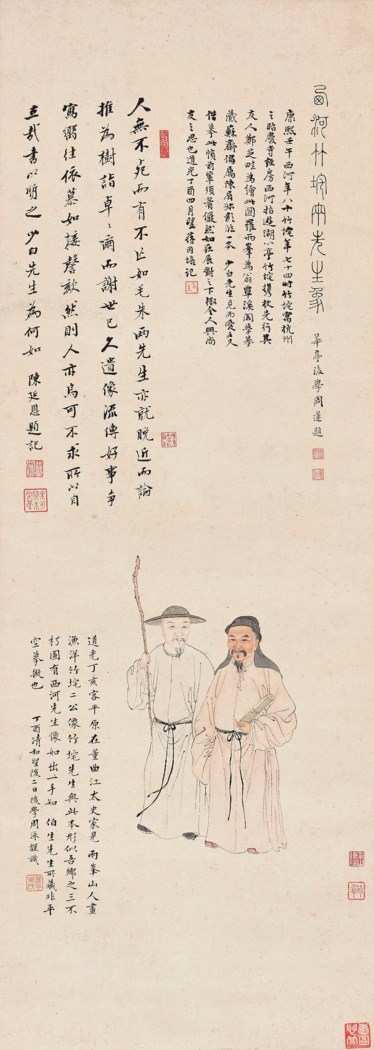 西河竹垞兩先生象
華亭後學周蓮題
康熙壬午西河年八十竹垞年七十四時竹垞寓杭州
之昭慶寺僧房西河招遊湖心亭竹垞攜杖先行其
友人鄭芝畦為繪此圖羅兩峯為翁覃溪閣學摹
藏蘇齋偶屬陳眉卿影臨一本少白先生見而愛之又
借摹此幀前輩須眉儼然如在展對之下極令人興尚
友之思也道光丁酉四月望蔣因培記
人無不死而有不亡如毛朱兩先生亦就晚近而論
推為樹詣卓〻爾而謝世已久遺像流傳好事爭
寫嚮往依慕如接謦欬然則人亦烏可不求所以自
立哉書以質之少白先生為何如 陳延恩題記
道光丁亥客平原在董曲江太史家見兩峯山人畫
漁洋竹垞二公像竹垞先生與此本形似吾鄉之三不
朽圖有西河先生像如出一手知伯生先生所藏非平
空摹擬也
丁酉清和望後二日後學周泳謹識